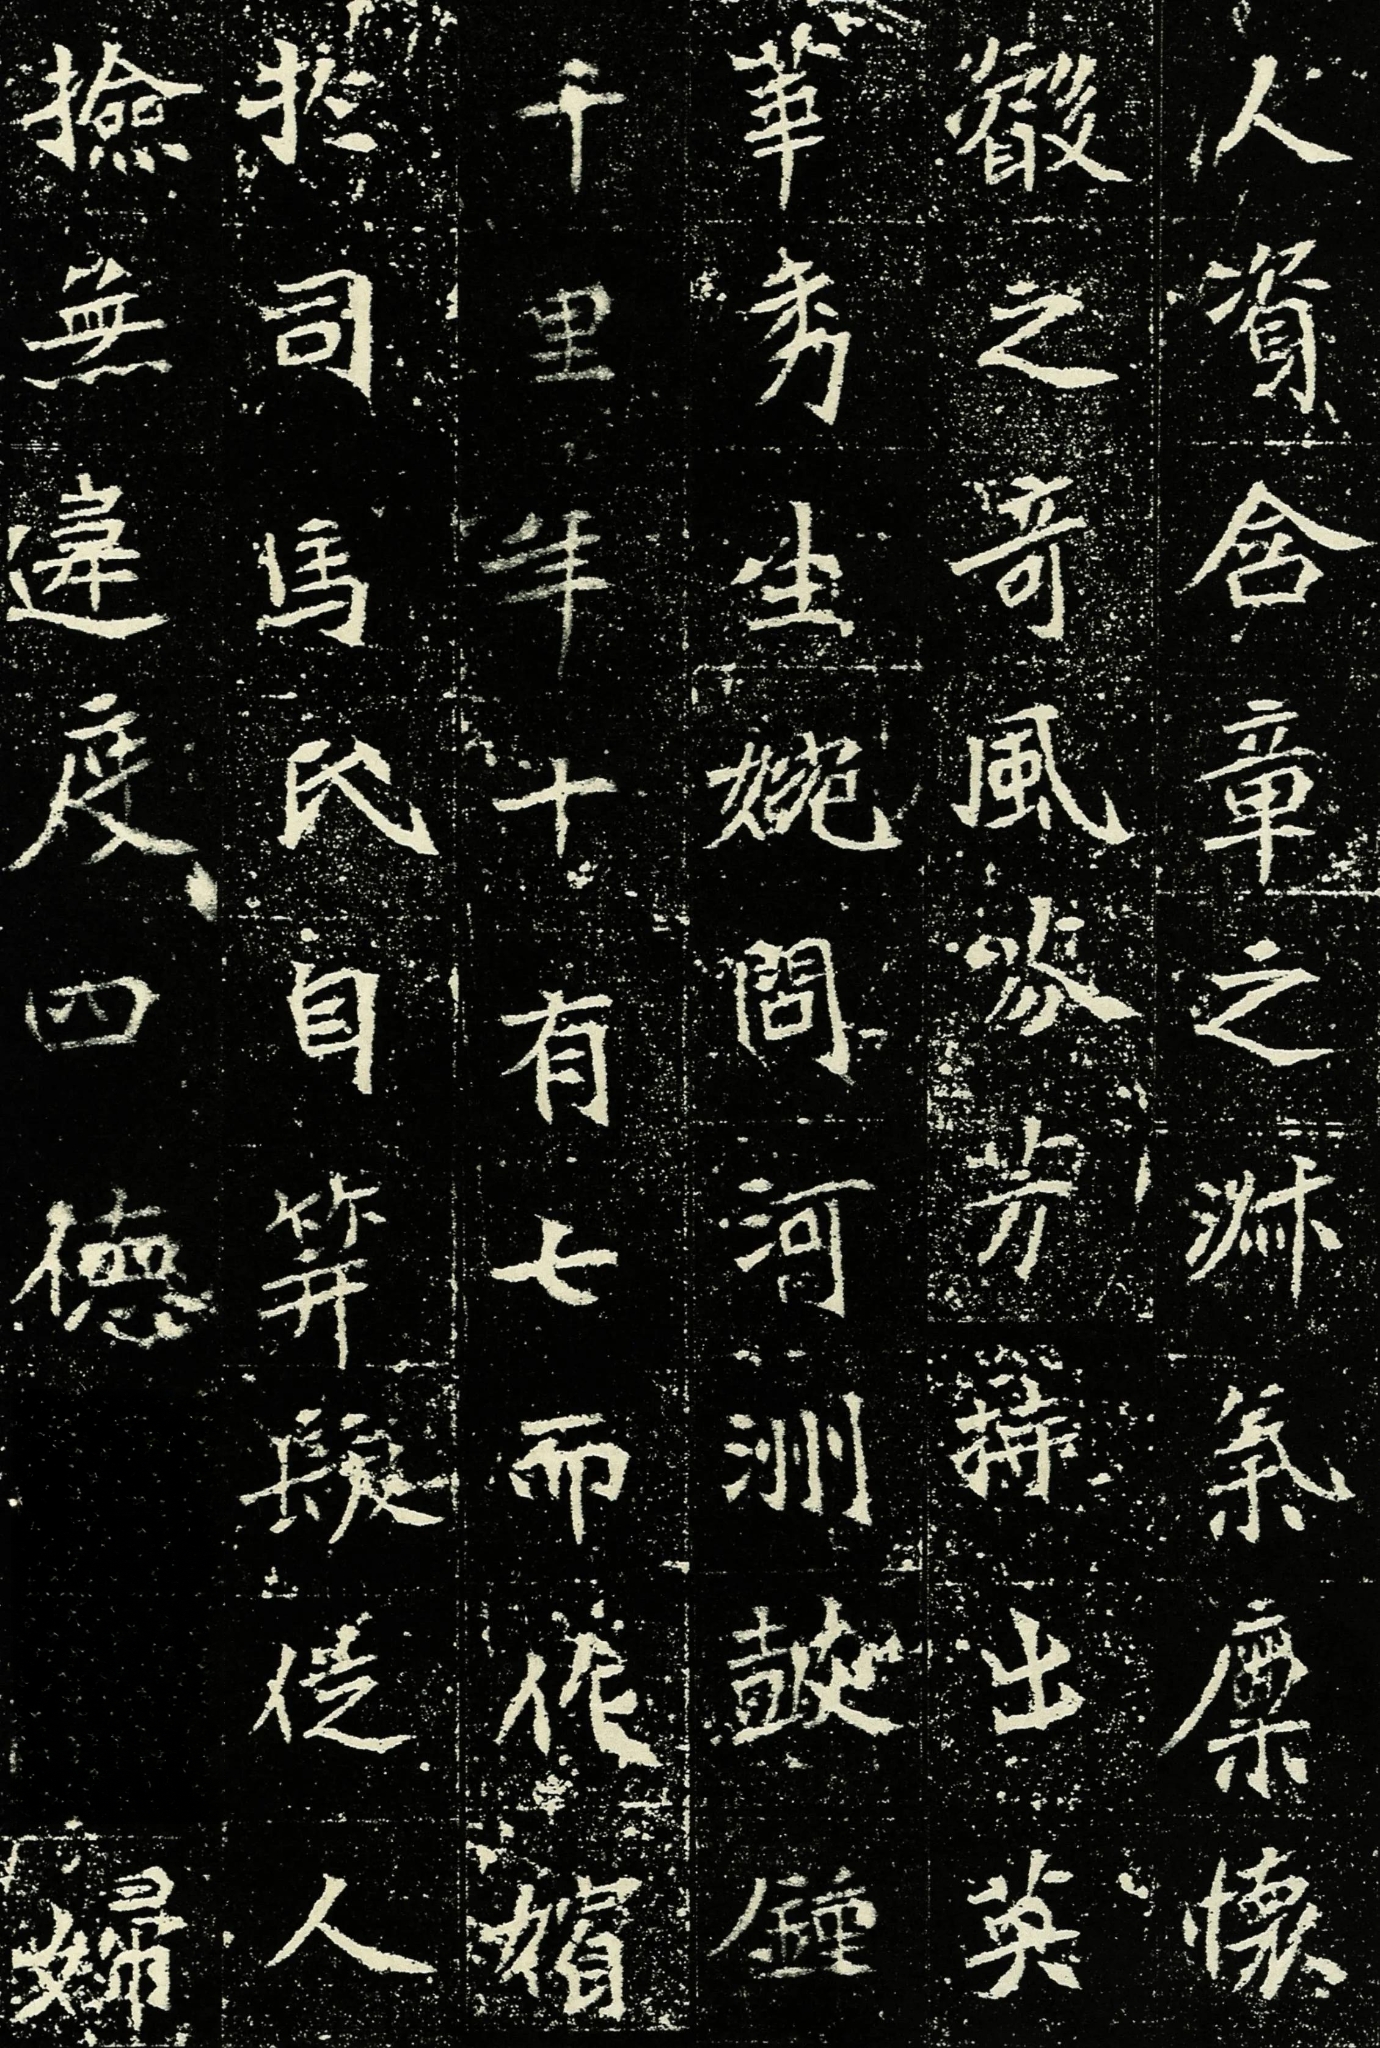 人資含章之淑氣稟懷
叡之奇風芬芳特出英
華秀生婉問河洲皷鍾
千里年十有七而作嬪
扵司馬氏自笄髮従人
撿無違度四德婦